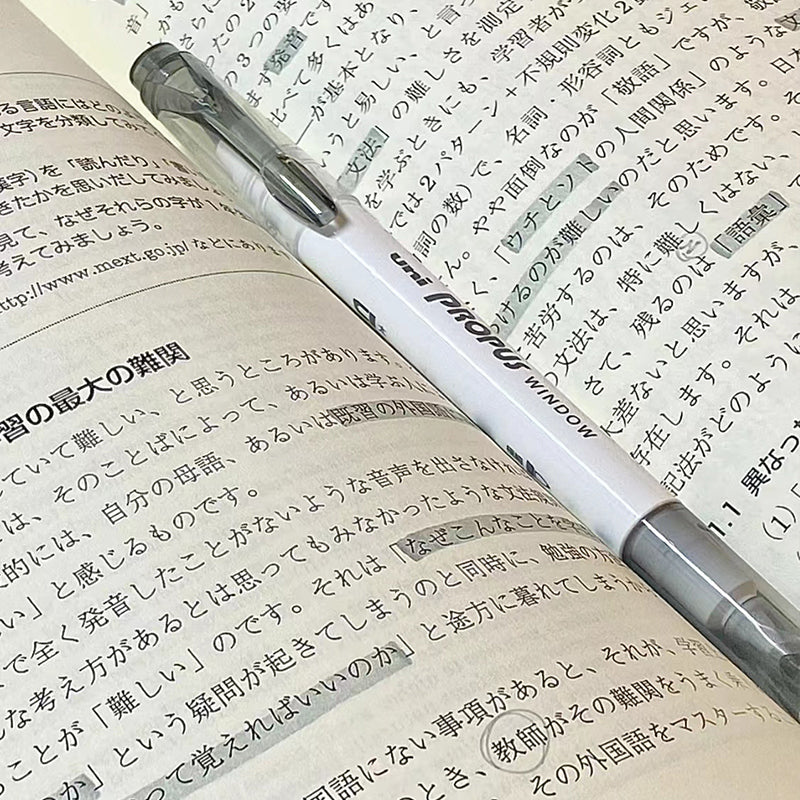 る言語にはどの
文字を分類してみて
漢字）を「読んだり」「書
きたかを思いだしてみまし
見て、なぜそれらの字が1年
考えてみましょう。
http://www.mext.go.jp/などにありま
習の最大の難関
ていて難しい、と思うところがあります。
は、そのことばによって、あるいは学ぶ人に
的には、自分の母語、あるいは既習の外国語
い」と感じるものです。
で全く発音したことがないような音声を出さなけれ
な考え方があるとは思ってもみなかったような文法
ことが「難しい」のです。それは「なぜこんなことを
か」という疑問が起きてしまうのと同時に、勉強の方
って覚えればいいのか」と途方に暮れてしまうか
国語にない事項があると、それが、学習
のとき、教師がその難関をうまく乗
その外国語をマスターする
uni PROPUS WINDOW
音」かも
さらに
の3つの要
まず発音です
比べて多くはあ
が基本となり、
いうと易しい、と言っ
文法」の難しさを測定
を学ぶときにも、学習者が
では2パターン＋不規則変化2
詞の数）で、名詞・形容詞ともジェ
ん。やや面倒なのが「敬語」ですが、
く、「ウチとソト」の人間関係」のような
けるのが難しいのだと思います。日
苦労するのは、そのためです。そ
の文法は、特に難しくはない、
さて、残るのは「語彙」
大差ないと思いますが、
存在します。それは
記法がどのように
1.1 異なっ
(1)「